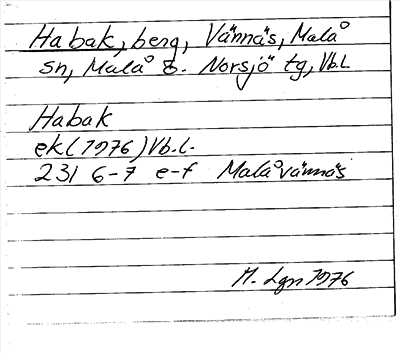 Habak, berg, Vännäs, Malå
sn, Malå o. Norsjö tg, Vb.l
Habak
ek (1976) Vb.l.
231 6-7 e-f Malåvännäs
M. Lgn 1976